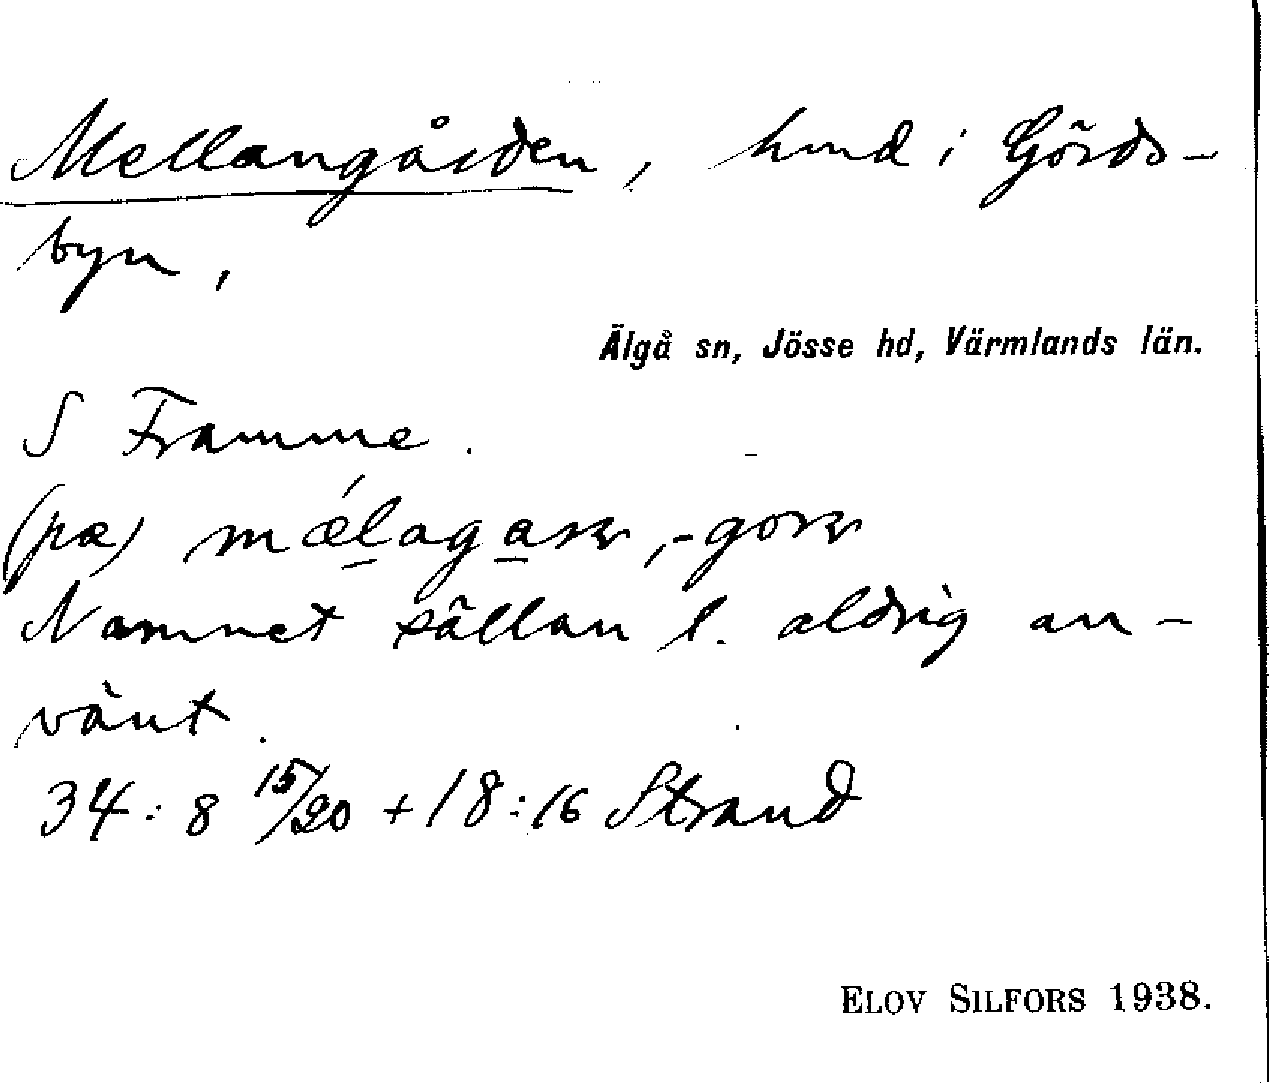 Mellangården, hmd i Görds-
byn,
Älgå sn, Jösse hd, Värmlands län.
S Framme.
(pæ)
Namnet sällan l. aldrig an-
vänt.
34:8 15/20 + 18:16 Strand
ELOV SILFORS 1938.